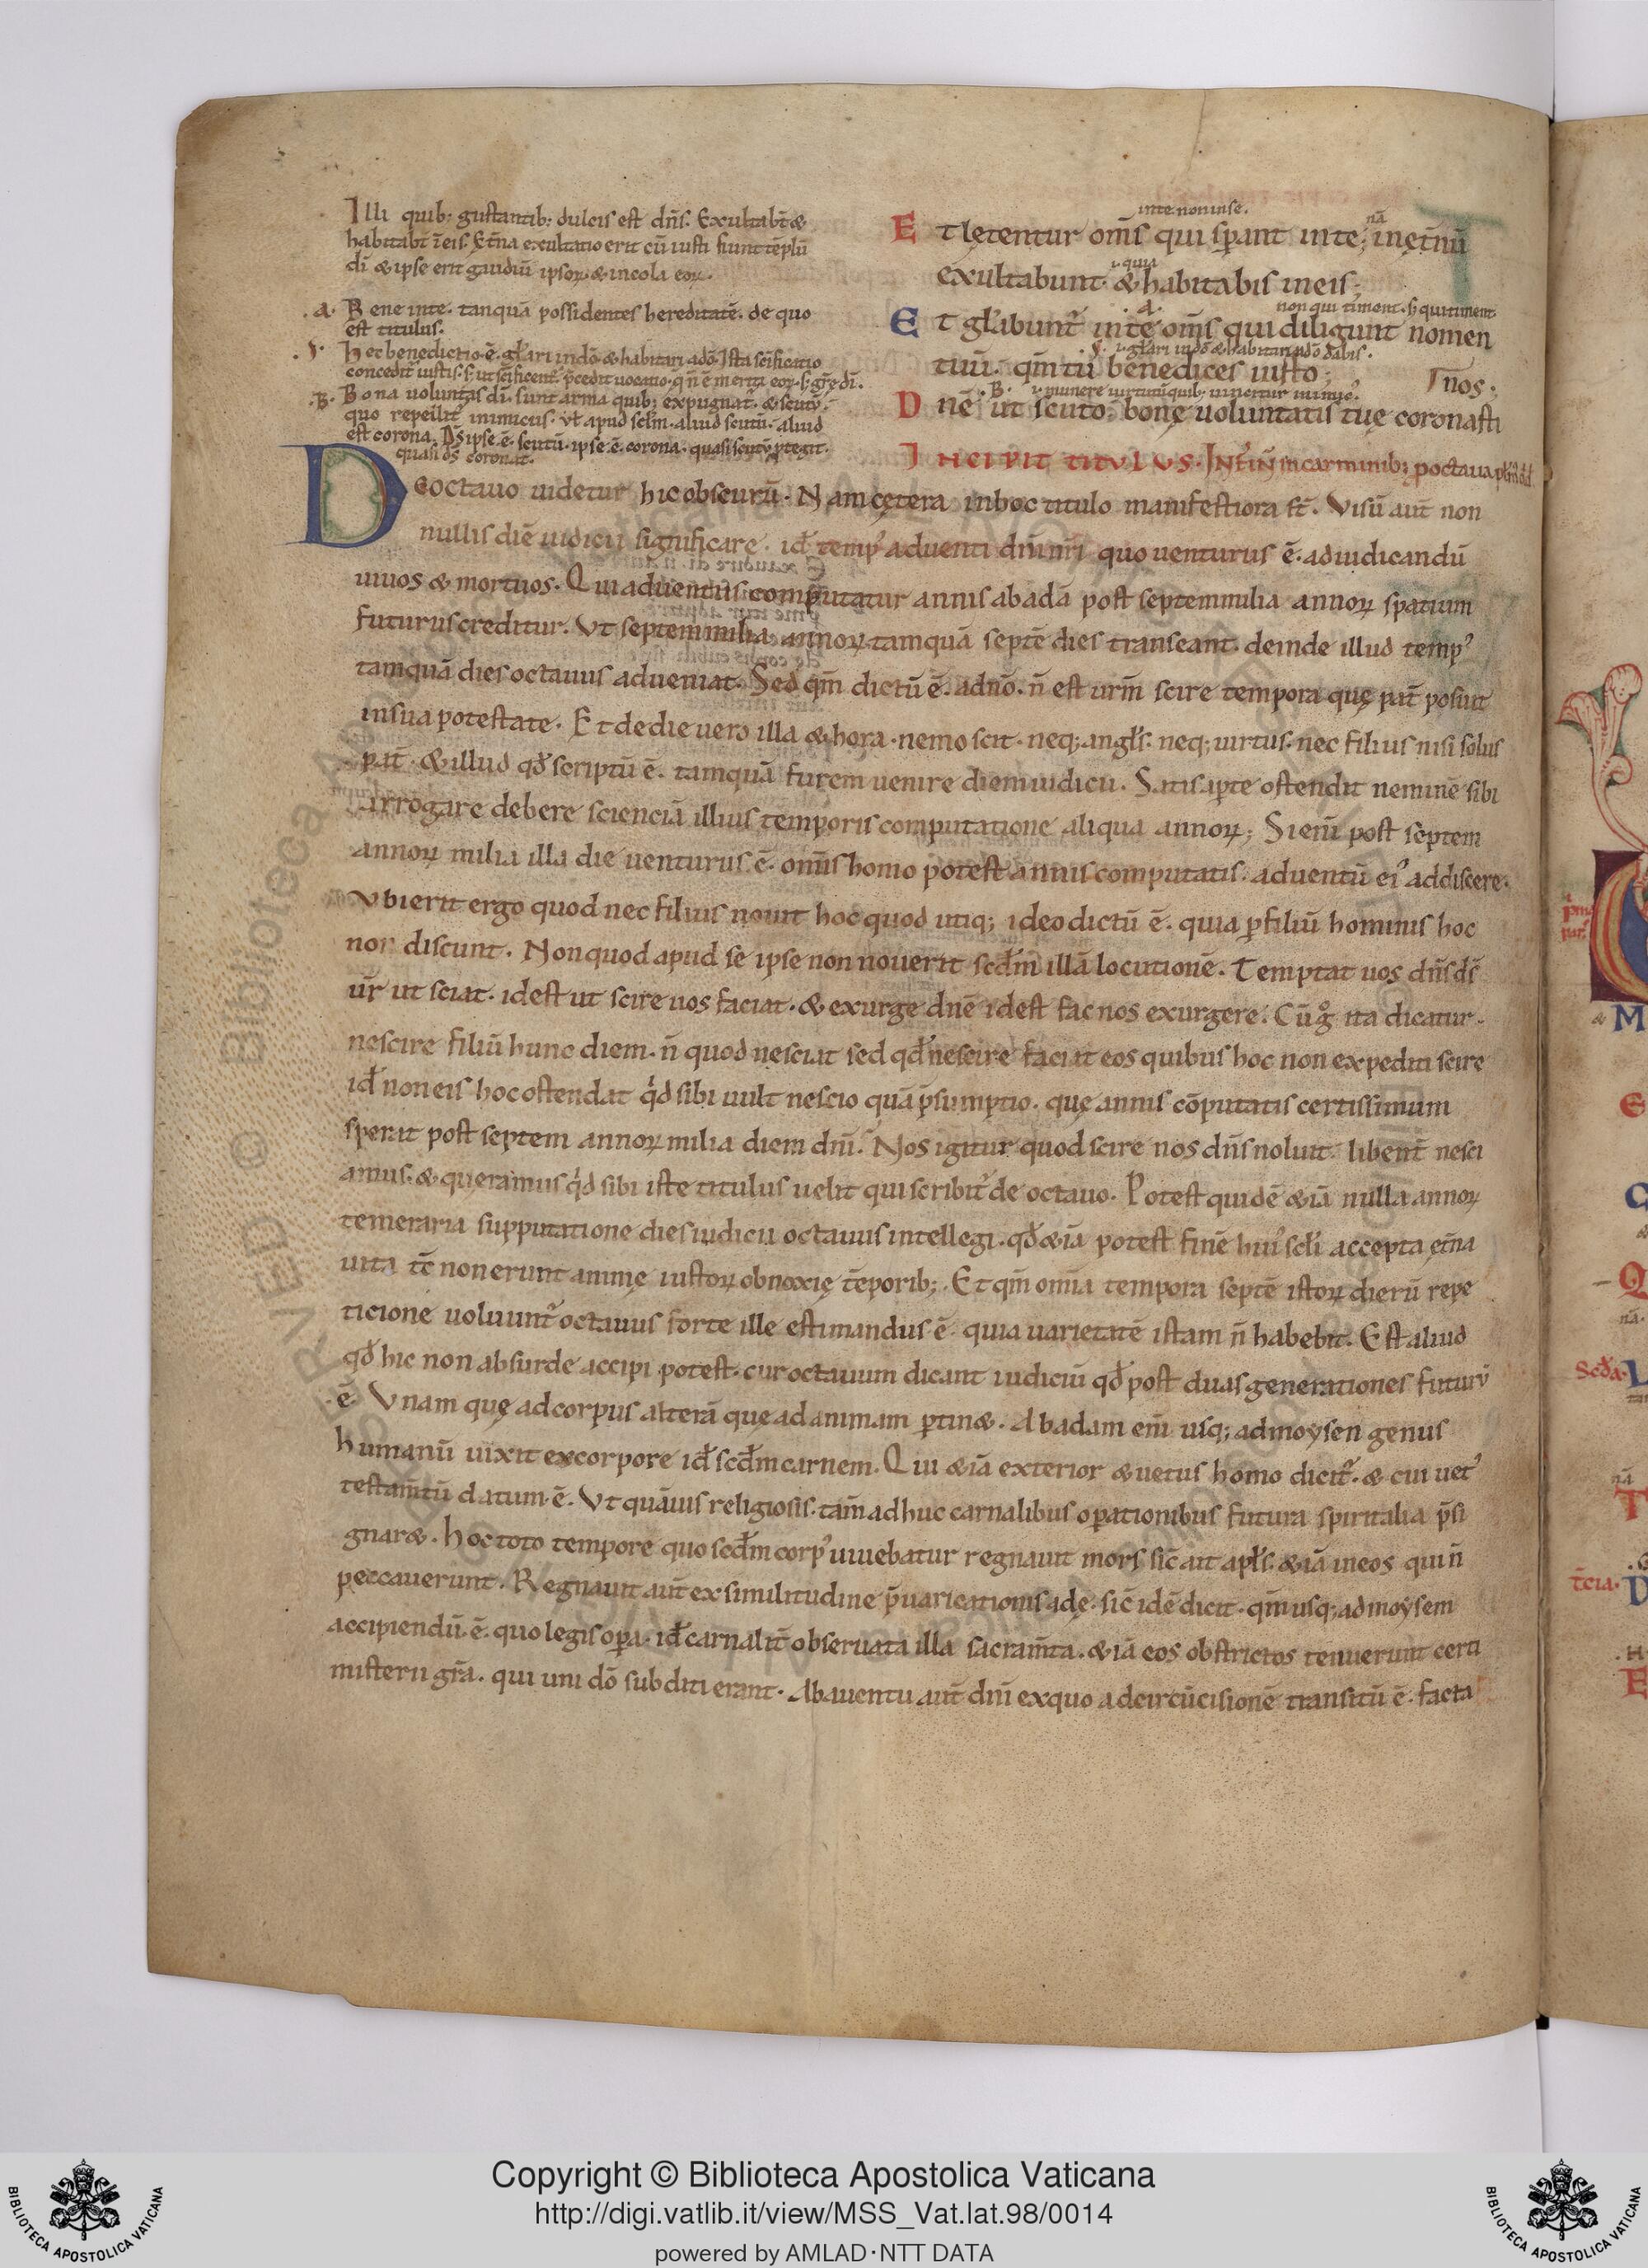 Illi quib; gustantib; dulcis est dn̄s. Exultabt̄ &
habitabt̄ ī eis. Et̄na exultatio erit cū iusti fiunt tēplū
dī & ipse erit gaudiū ipsoꝝ & incola eoꝝ.
.a. Bene in te. tanquā possidentes hereditatē. de quo
est titulus.
Hec benedictio .ē. gl̄ari in dō & habitari a dō. Ista sc̄ificatio
concedit̄ iustis. s; ut sc̄ificent᷑ p̄cedit uocatio. q̄ n̄ ē merita eoꝝ. s; grē dī.
.B. Bona uoluntas dī. sunt arma quib; expugnat᷑. & scutū
quo repellit᷑ inimicus. ul̄ apud scl̄m. aliud scutū. aliud
est corona. D̄s ipse .ē. scutū. ipse .ē. corona. quasi scuto ꝓtegit.
quasi d̄s coronat.
in te non in se.
Et lętentur om̄s qui sꝑant in te; in ęt̄nū
.i. quia
exultabunt & habitabis in eis;
.a. non qui timent. s; qui tinent
Et gl̄abunt᷑ in te om̄s qui diligunt nomen
.i. gl̄ari in dō & habitari a dō dabis.
tuū. qm̄ tu benedices iusto;
.B. .i. munere
nos;
Dnē ut scuto bonę uoluntatis tuę coronasti
INCIPIT TITULUS. IN FINĒ in carminib; ꝓ octaua psl̄m dd.
De octauo uidetur hic obscurū. Nam cętera in hoc titulo manifestiora st̄. Visū aut̄ non
nullis diē iudicii significare. id̄ temp᷒ aduenti dn̄i nr̄i quo uenturus ē. ad iudicandū
uiuos & mortuos. Qui aduentus computatur annis ab adā post septem milia annoꝝ spatium
futurus creditur. Vt septem milia annoꝝ tamquā septē dies transeant. deinde illud temp᷒
tamquā dies octauus adueniat. Sed qm̄ dictū ē. a dn̄o. n̄ est ur̄m scire tempora quę pat̄ posuit
in sua potestate. Et de die uero illa & hora. nemo scit. neq; angl̄s. neq; uirtus. nec filius nisi solus
pat̄. & illud qd̄ scriptū ē. tamquā furem uenire diem iudicii. Satis aꝑte ostendit neminē sibi
arrogare debere scienciā illius temporis computatione aliqua annoꝝ; Si eni̅ post septem
annoꝝ milia illa die uenturus .ē. om̄is homo potest annis computatis. aduentū ei᷒ addiscere.
Vbi erit ergo quod nec filius nouit hoc quod utiq; ideo dictū ē. quia ꝑ filiū hominis hoc
non discunt. Non quod apud se ipse non nouerit scd̄m illā locutionē. Temptat uos dn̄s d̄s
ur̄ ut sciat. id est ut scire uos faciat. & exurge dn̄e id est fac nos exurgere. Cū g° ita dicatur.
nescire filiū hunc diem. n̄ quod nesciat sed qd̄ nescire faciat eos quibus hoc non expedit scire
id̄ non eis hoc ostendat qͥd sibi uult nescio quā p̄sumptio. quę annis cōputatis certissimum
sperat post septem annoꝝ milia diem dn̄i. Nos igitur quod scire nos dn̄s noluit. libent̄ nesci
amus. & queramus qͥd sibi iste titulus uelit qui scribit᷑ de octauo. Potest quidē & iā nulla annoꝝ
temeraria supputatione dies iudicii octauus intellegi. qd̄ & iā potest finē hui᷒ scl̄i accepta ęt̄na
uita tc̄ non erunt animę iustoꝝ obnoxię tēporib;. Et qm̄ om̄ia tempora septē istoꝝ dierū repe
ticione uoluunt᷑ octauus forte ille estimandus ē. quia uarietatē istam n̄ habebit. Est aliud
qd̄ hic non absurde accipi potest. cur octauum dicant iudiciū qd̄ post duas generationes futurū
.ē. Vnam quę ad corpus alterā que ad animam ꝑtin&. Ab adam eni̅ usq; ad moysen genus
humanū uixit ex corpore id̄ scd̄m carnem. Qui & iā exterior & uetus homo dicit᷑. & cui uet᷒
testam̄tū datum ē. Vt quāuis religiosis. tam̄ adhuc carnalibus oꝑationibus futura spiritalia p̄si
gnar&. Hoc toto tempore quo scd̄m corp᷒ uiuebatur regnauit mors sic̄ ait apl̄s. & iā in eos qui n̄
peccauerunt. Regnauit aut̄ ex similitudine p̄uaricationis adę. sic̄ idē dicit. qm̄ usq; ad moysem
accipiendū .ē. quo legis oꝑa. id̄ carnalit̄ obseruata illa sacram̄ta. & iā eos obstrictos tenuerunt certi
misterii gr̄a. qui uni dō subditi erant. Ab auentu aut̄ dn̄i ex quo a circūcisionē transitū ē. facta
Copyright © Biblioteca Apostolica Vaticana
http://digi.vatlib.it/view/MSS_Vat.lat.98/0014
powered by AMLAD·NTT DATA
BIBLIOTECA APOSTOLICA VATICANA
BIBLIOTECA APOSTOLICA VATICANA